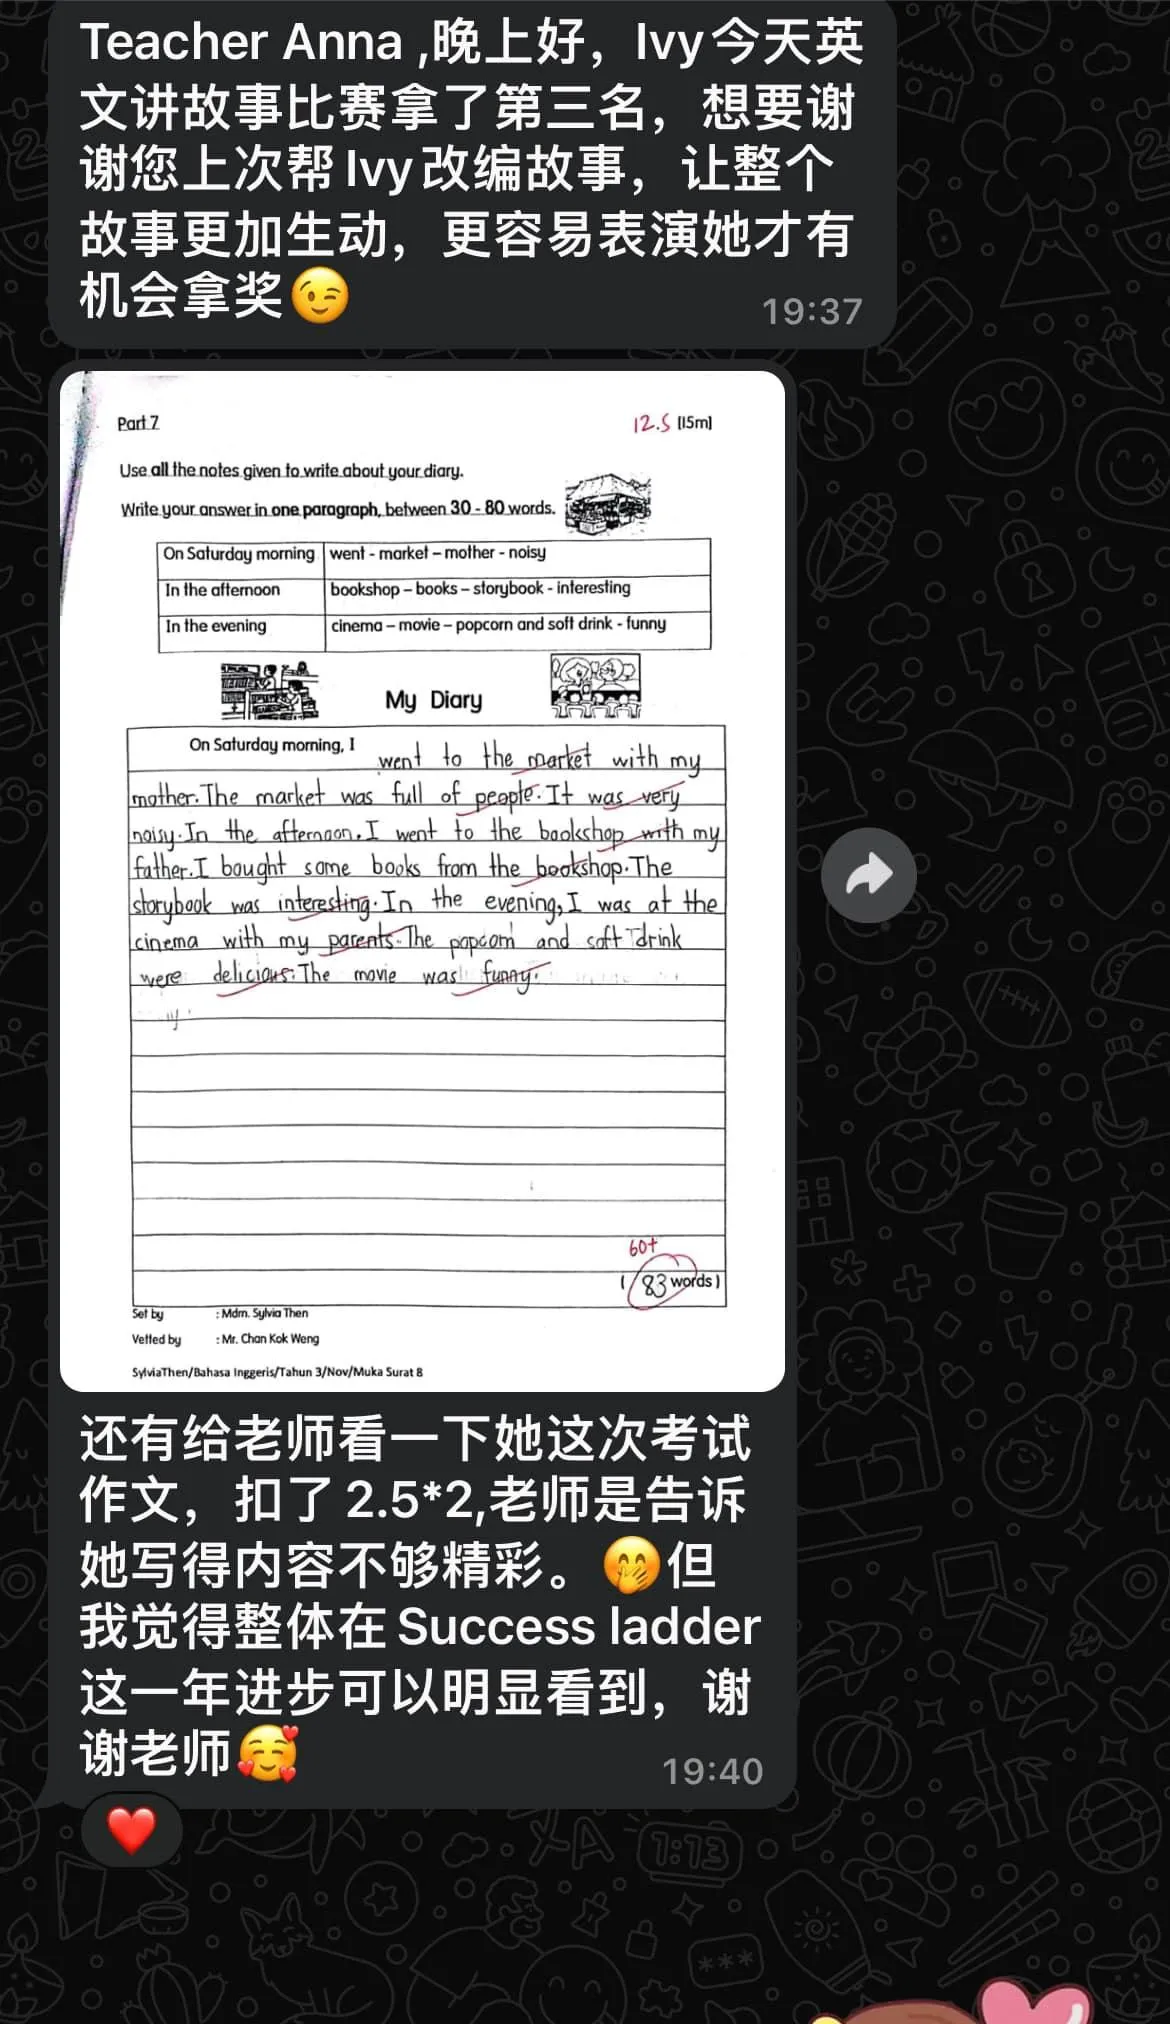 Teacher Anna ,晚上好，Ivy今天英
文讲故事比赛拿了第三名，想要谢
谢您上次帮Ivy改编故事，让整个
故事更加生动，更容易表演她才有
机会拿奖😉
19:37
Part 7
12.5 [15m]
Use all the notes given to write about your diary.
Write your answer in one paragraph, between 30 - 80 words.
On Saturday morning went - market – mother - noisy
In the afternoon bookshop – books – storybook - interesting
In the evening cinema – movie – popcorn and soft drink - funny
My Diary
On Saturday morning, I went to the market with my
mother. The market was full of people. It was very
noisy. In the afternoon, I went to the bookshop with my
father. I bought some books from the bookshop. The
storybook was interesting. In the evening, I was at the
cinema with my parents. The popcorn and soft drink
were delicious. The movie was funny.
60+
( 83 words )
Set by : Mdm. Sylvia Then
Vetted by : Mr. Chan Kok Weng
SylviaThen/Bahasa Inggeris/Tahun 3/Nov/Muka Surat 8
还有给老师看一下她这次考试
作文，扣了2.5*2,老师是告诉
她写得内容不够精彩。🤭但
我觉得整体在Success ladder
这一年进步可以明显看到，谢
谢老师🥰
19:40